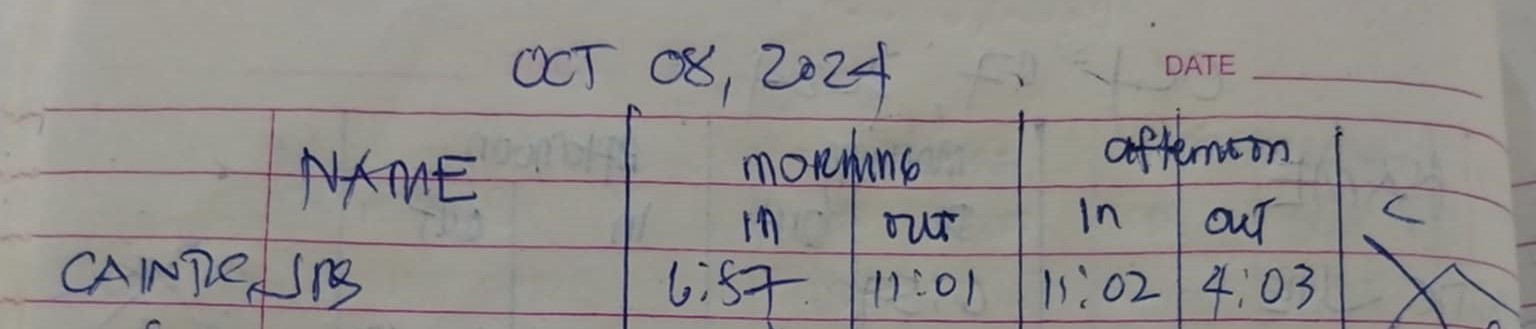 OCT 08, 2024 DATE
NAME morning afternoon
in out in out
6:57 11:01 11:02 4:03